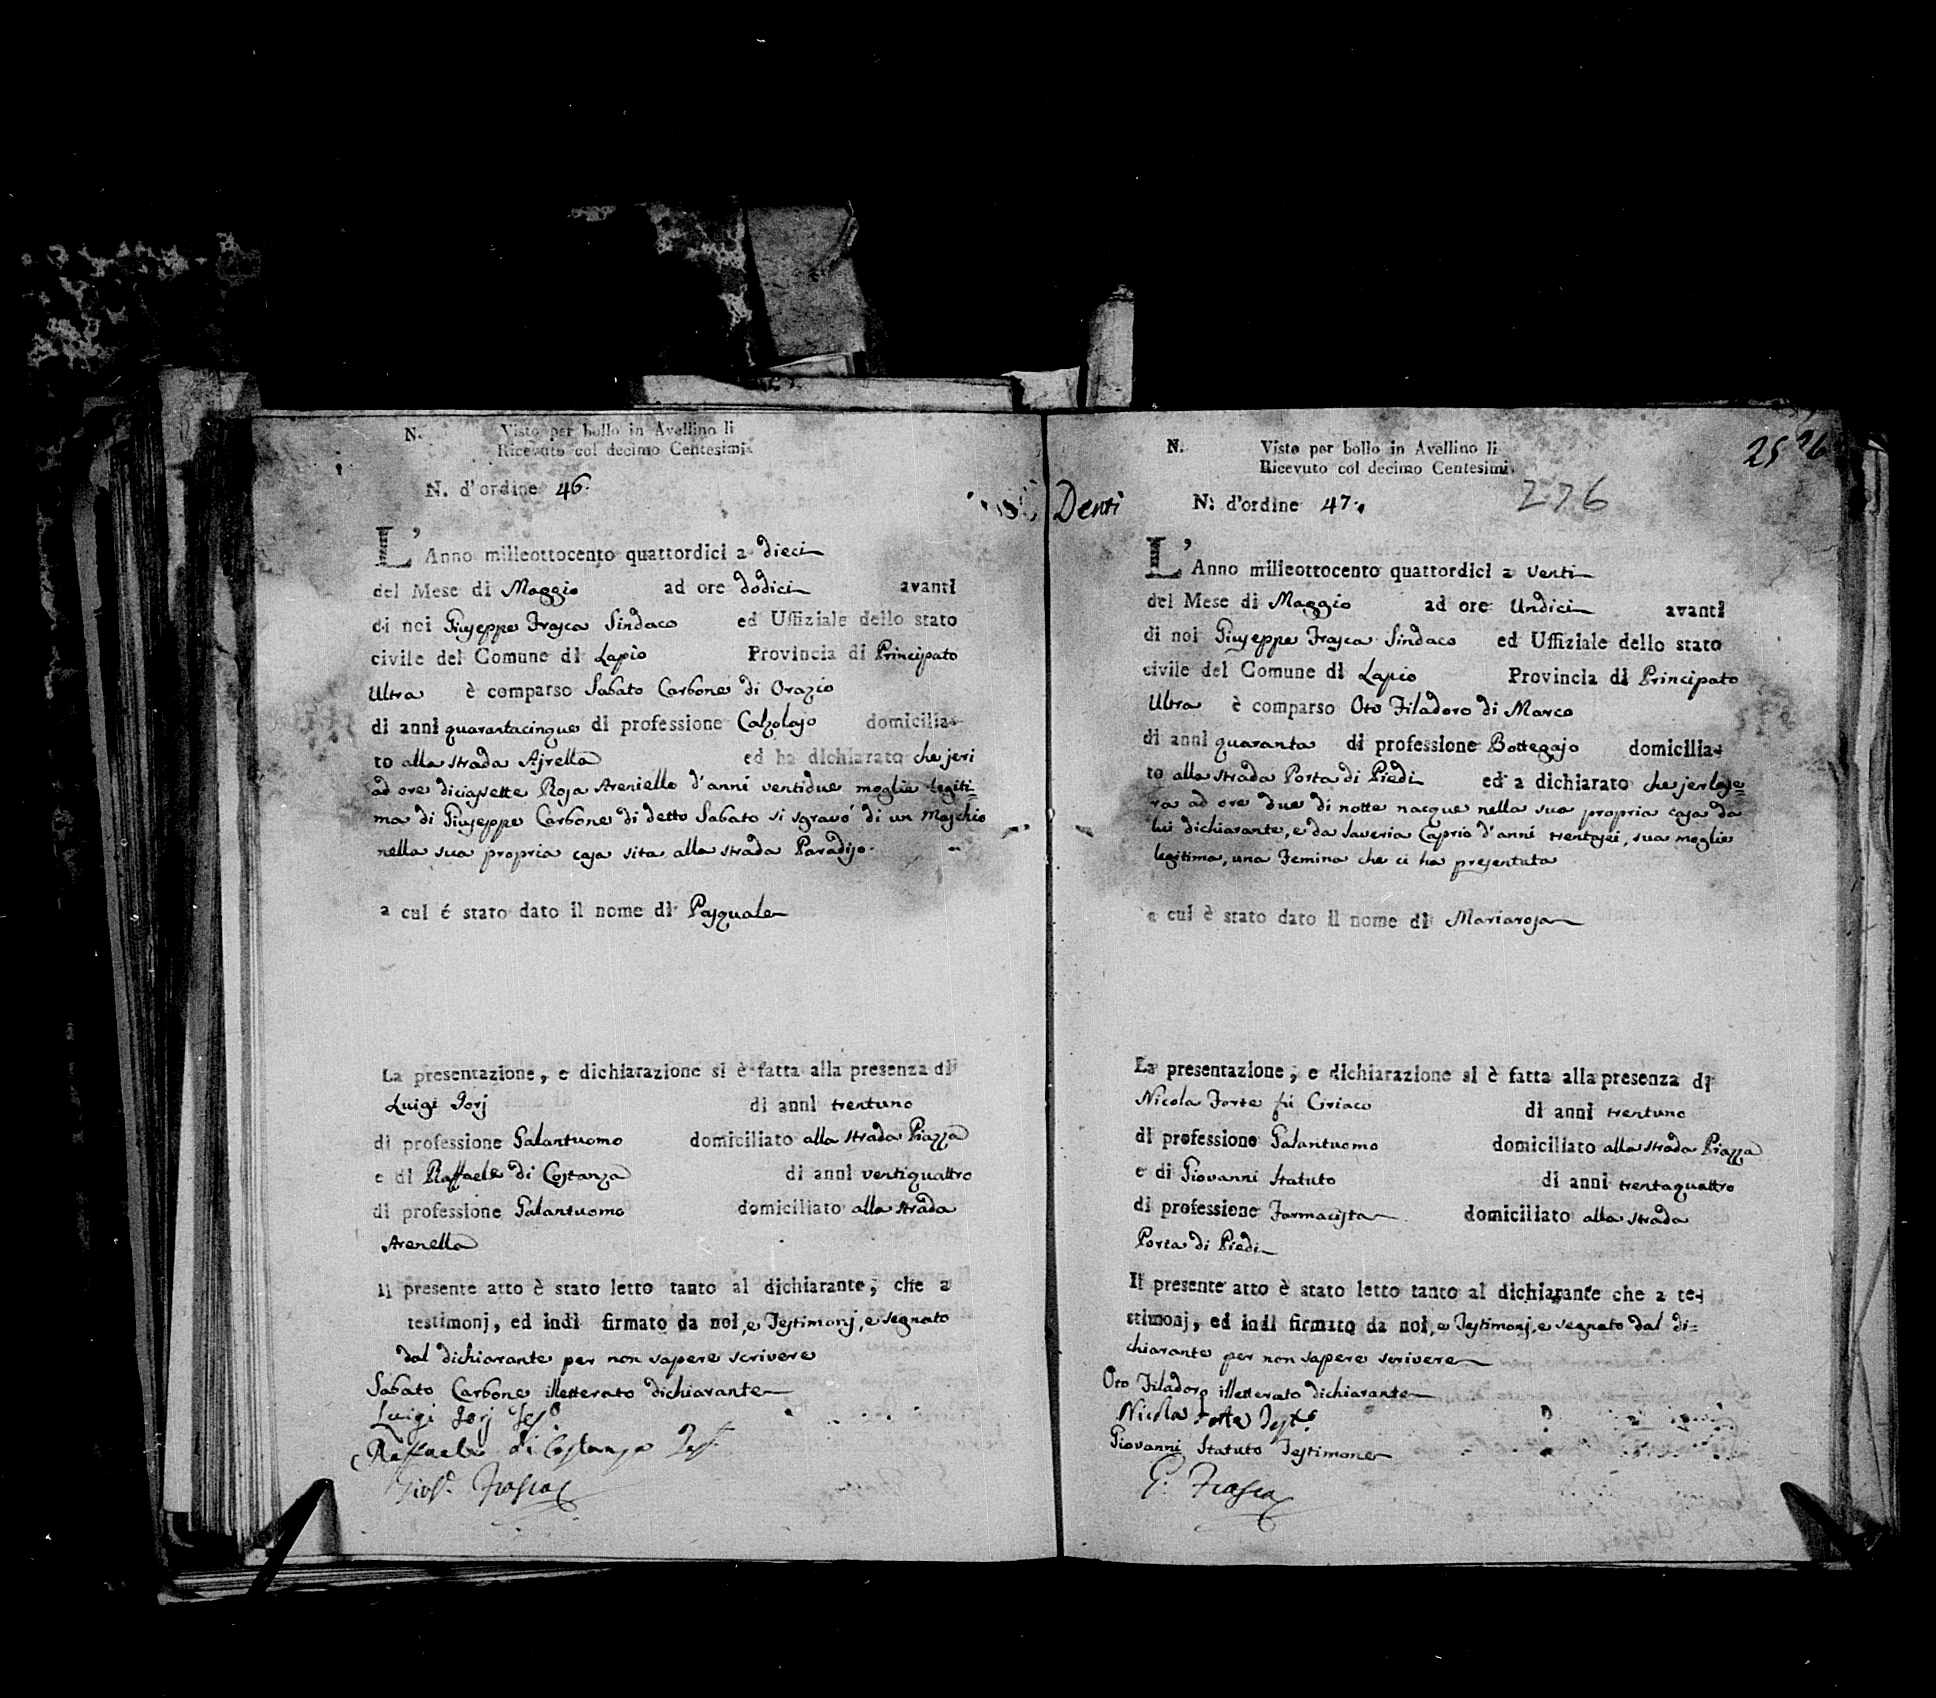 N.
Visto per bollo in Avellino li
Ricevuto col decimo Centesimi
N. d'ordine 46.
L'Anno milleottocento quattordici a dieci
del Mese di Maggio ad ore dodici avanti
di noi Giuseppe Frasca Sindaco ed Uffiziale dello stato
civile del Comune di Lapio Provincia di Principato
Ultra è comparso Sabato Carbone di Orazio
di anni quarantacinque di professione Calzolajo domicilia-
to alla strada Ajrella ed ha dichiarato che jeri
ad ore diciasette Rosa Areniello d'anni ventidue moglie legiti=
ma di Giuseppe Carbone di detto Sabato si sgravò di un Maschio
nella sua propria casa sita alla strada Paradiso.
a cui é stato dato il nome di Pasquale
La presentazione, e dichiarazione si è fatta alla presenza di
Luigi Jorj di anni trentuno
di professione Galantuomo domiciliato alla strada Piazza
e di Raffaele di Costanza di anni ventiquattro
di professione Galantuomo domiciliato alla strada
Arenella
Il presente atto è stato letto tanto al dichiarante, che a
testimonj, ed indi firmato da noi, e Testimonj, e segnato
dal dichiarante per non sapere scrivere
Sabato Carbone illetterato dichiarante
Luigi Jorj Tes.
Raffaele di Costanza Test.
Gius. Frasca
Denti
N.
Visto per bollo in Avellino li
Ricevuto col decimo Centesimi.
25 26
276
N: d'ordine 47.
L'Anno milleottocento quattordici a venti
del Mese di Maggio ad ore Undici avanti
di noi Giuseppe Frasca Sindaco ed Uffiziale dello stato
civile del Comune di Lapio Provincia di Principato
Ultra è comparso Oto Filadoro di Marco
di anni quaranta di professione Bottegajo domicilia-
to alla strada Porta di Piedi ed a dichiarato che jerlase=
ra ad ore due di notte nacque nella sua propria casa da
lui dichiarante, e da Saveria Caprio d'anni trentasei, sua moglie
legitima, una Femina che ci ha presentata
a cui è stato dato il nome di Mariarosa
La presentazione, e dichiarazione si è fatta alla presenza di
Nicola Forte fù Ciriaco di anni trentuno
di professione Galantuomo domiciliato alla strada Piazza
e di Giovanni Statuto di anni trentaquattro
di professione Farmacista domiciliato alla strada
Porta di Piedi
Il presente atto è stato letto tanto al dichiarante che a te-
stimonj, ed indi firmato da noi, e Testimonj, e segnato dal di=
chiarante per non sapere scrivere
Oto Filadoro illetterato dichiarante
Nicola Forte Test.
Giovanni Statuto Testimone
G. Frasca